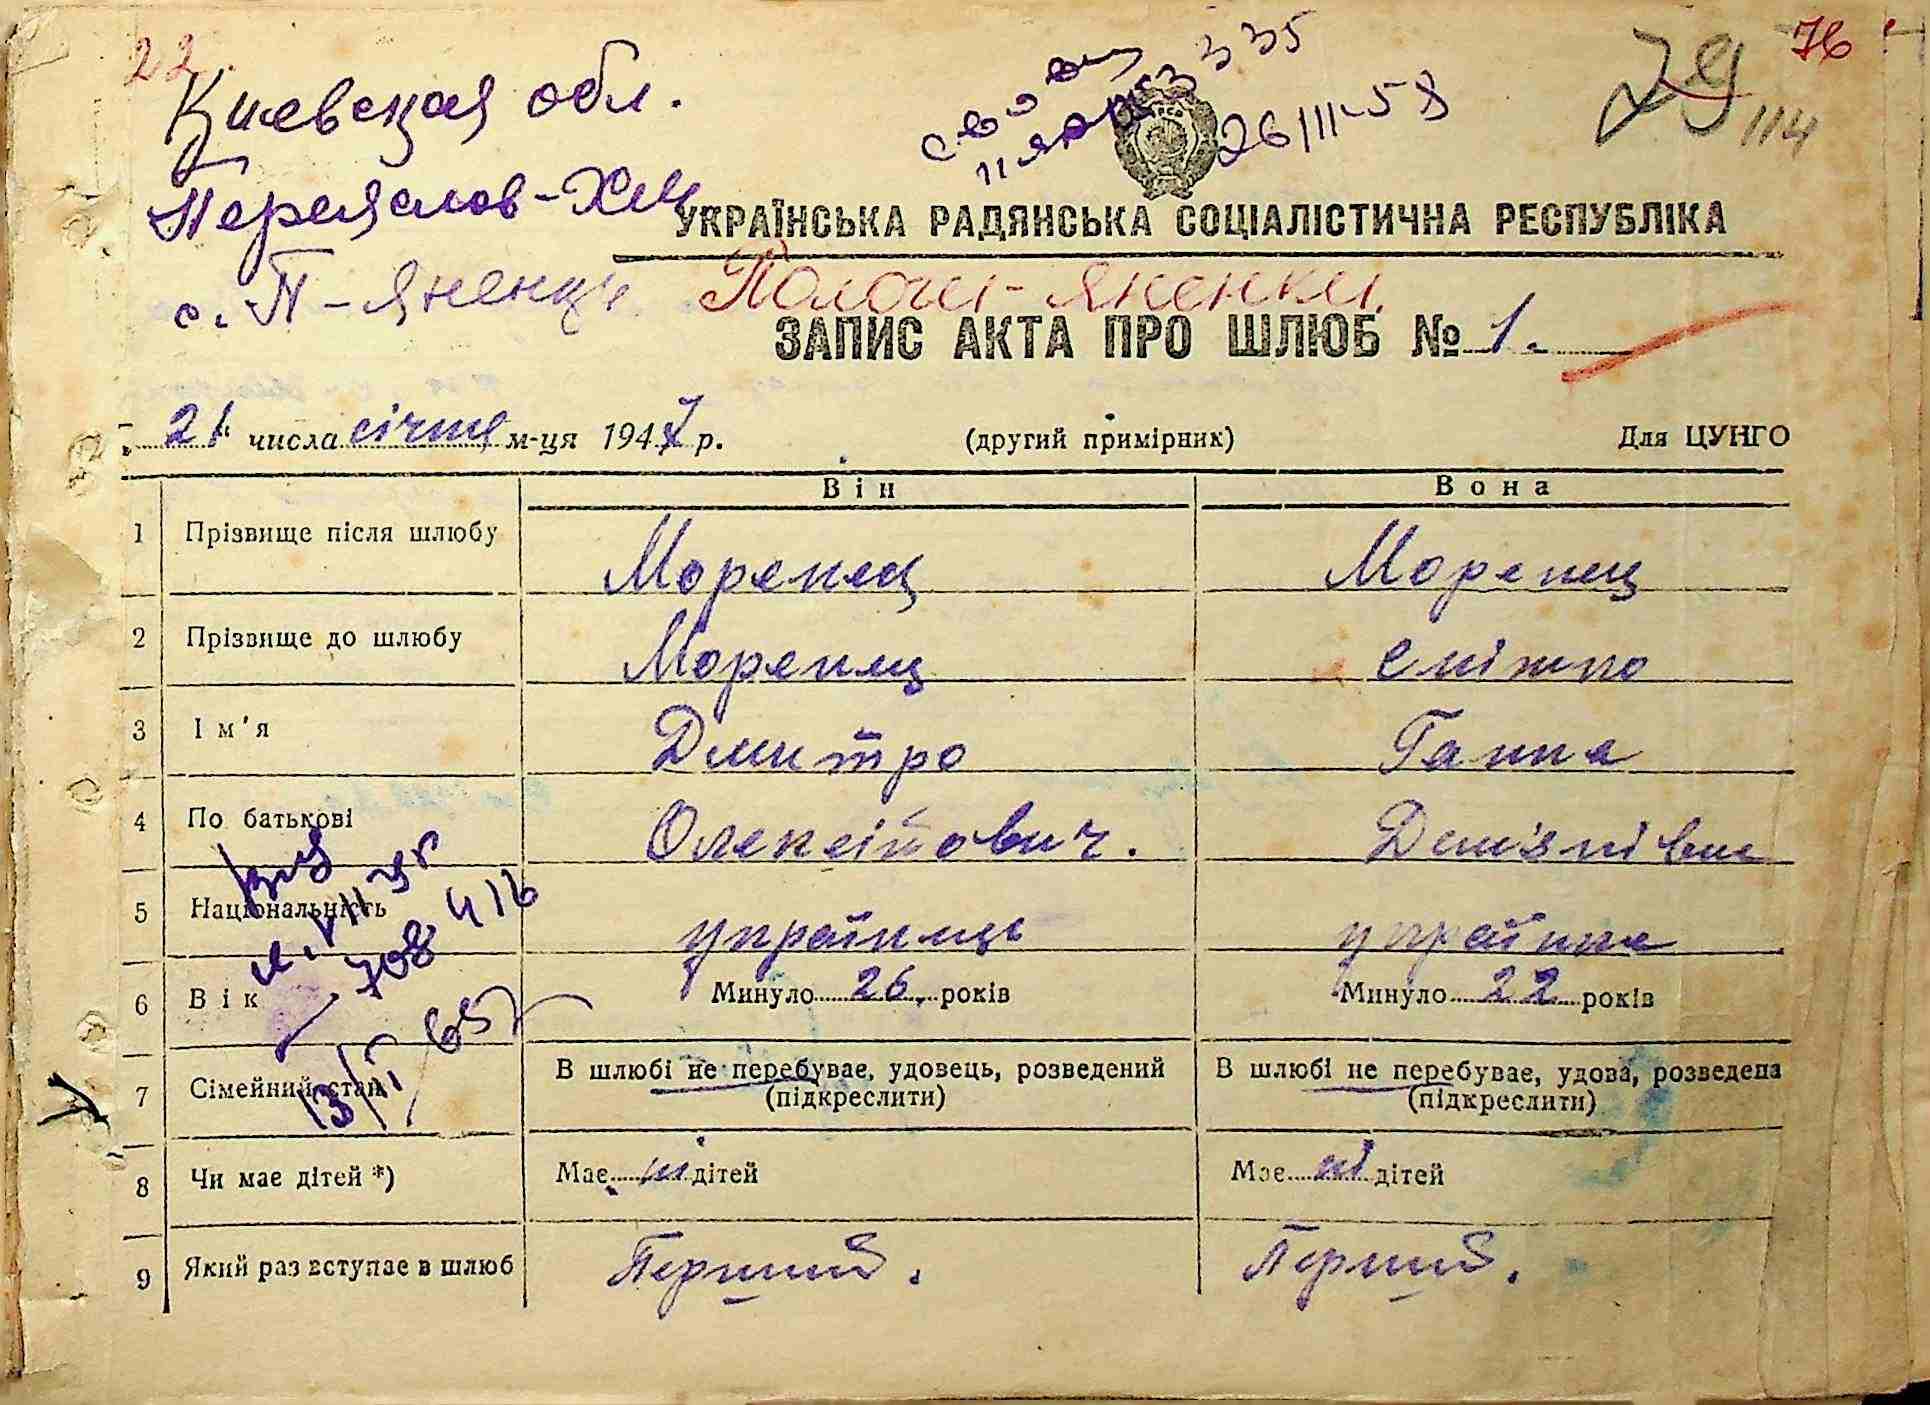 22.
76
Киевская обл.
335
79
114
26/III-58
Переяслов-Хм
УКРАЇНСЬКА РАДЯНСЬКА СОЦІАЛІСТИЧНА РЕСПУБЛІКА
с. П-Яненки Пологи-Яненки
ЗАПИС АКТА ПРО ШЛЮБ № 1.
„21" числа січня м-ця 1947 р. (другий примірник) Для ЦУНГО
Він Вона
1 Прізвище після шлюбу Моренец Моренец
2 Прізвище до шлюбу Моренец Сніжко
3 Ім'я Дмитро Ганна
4 По батькові Олексійович. Дем'янівна
5 Національність українець українка
708416
6 Вік Минуло 26. років Минуло 22 років
7 Сімейний стан В шлюбі не перебуває, удовець, розведений (підкреслити) В шлюбі не перебуває, удова, розведена (підкреслити)
8 Чи має дітей *) Має ні дітей Має ні дітей
9 Який раз вступає в шлюб Перший. Перший.